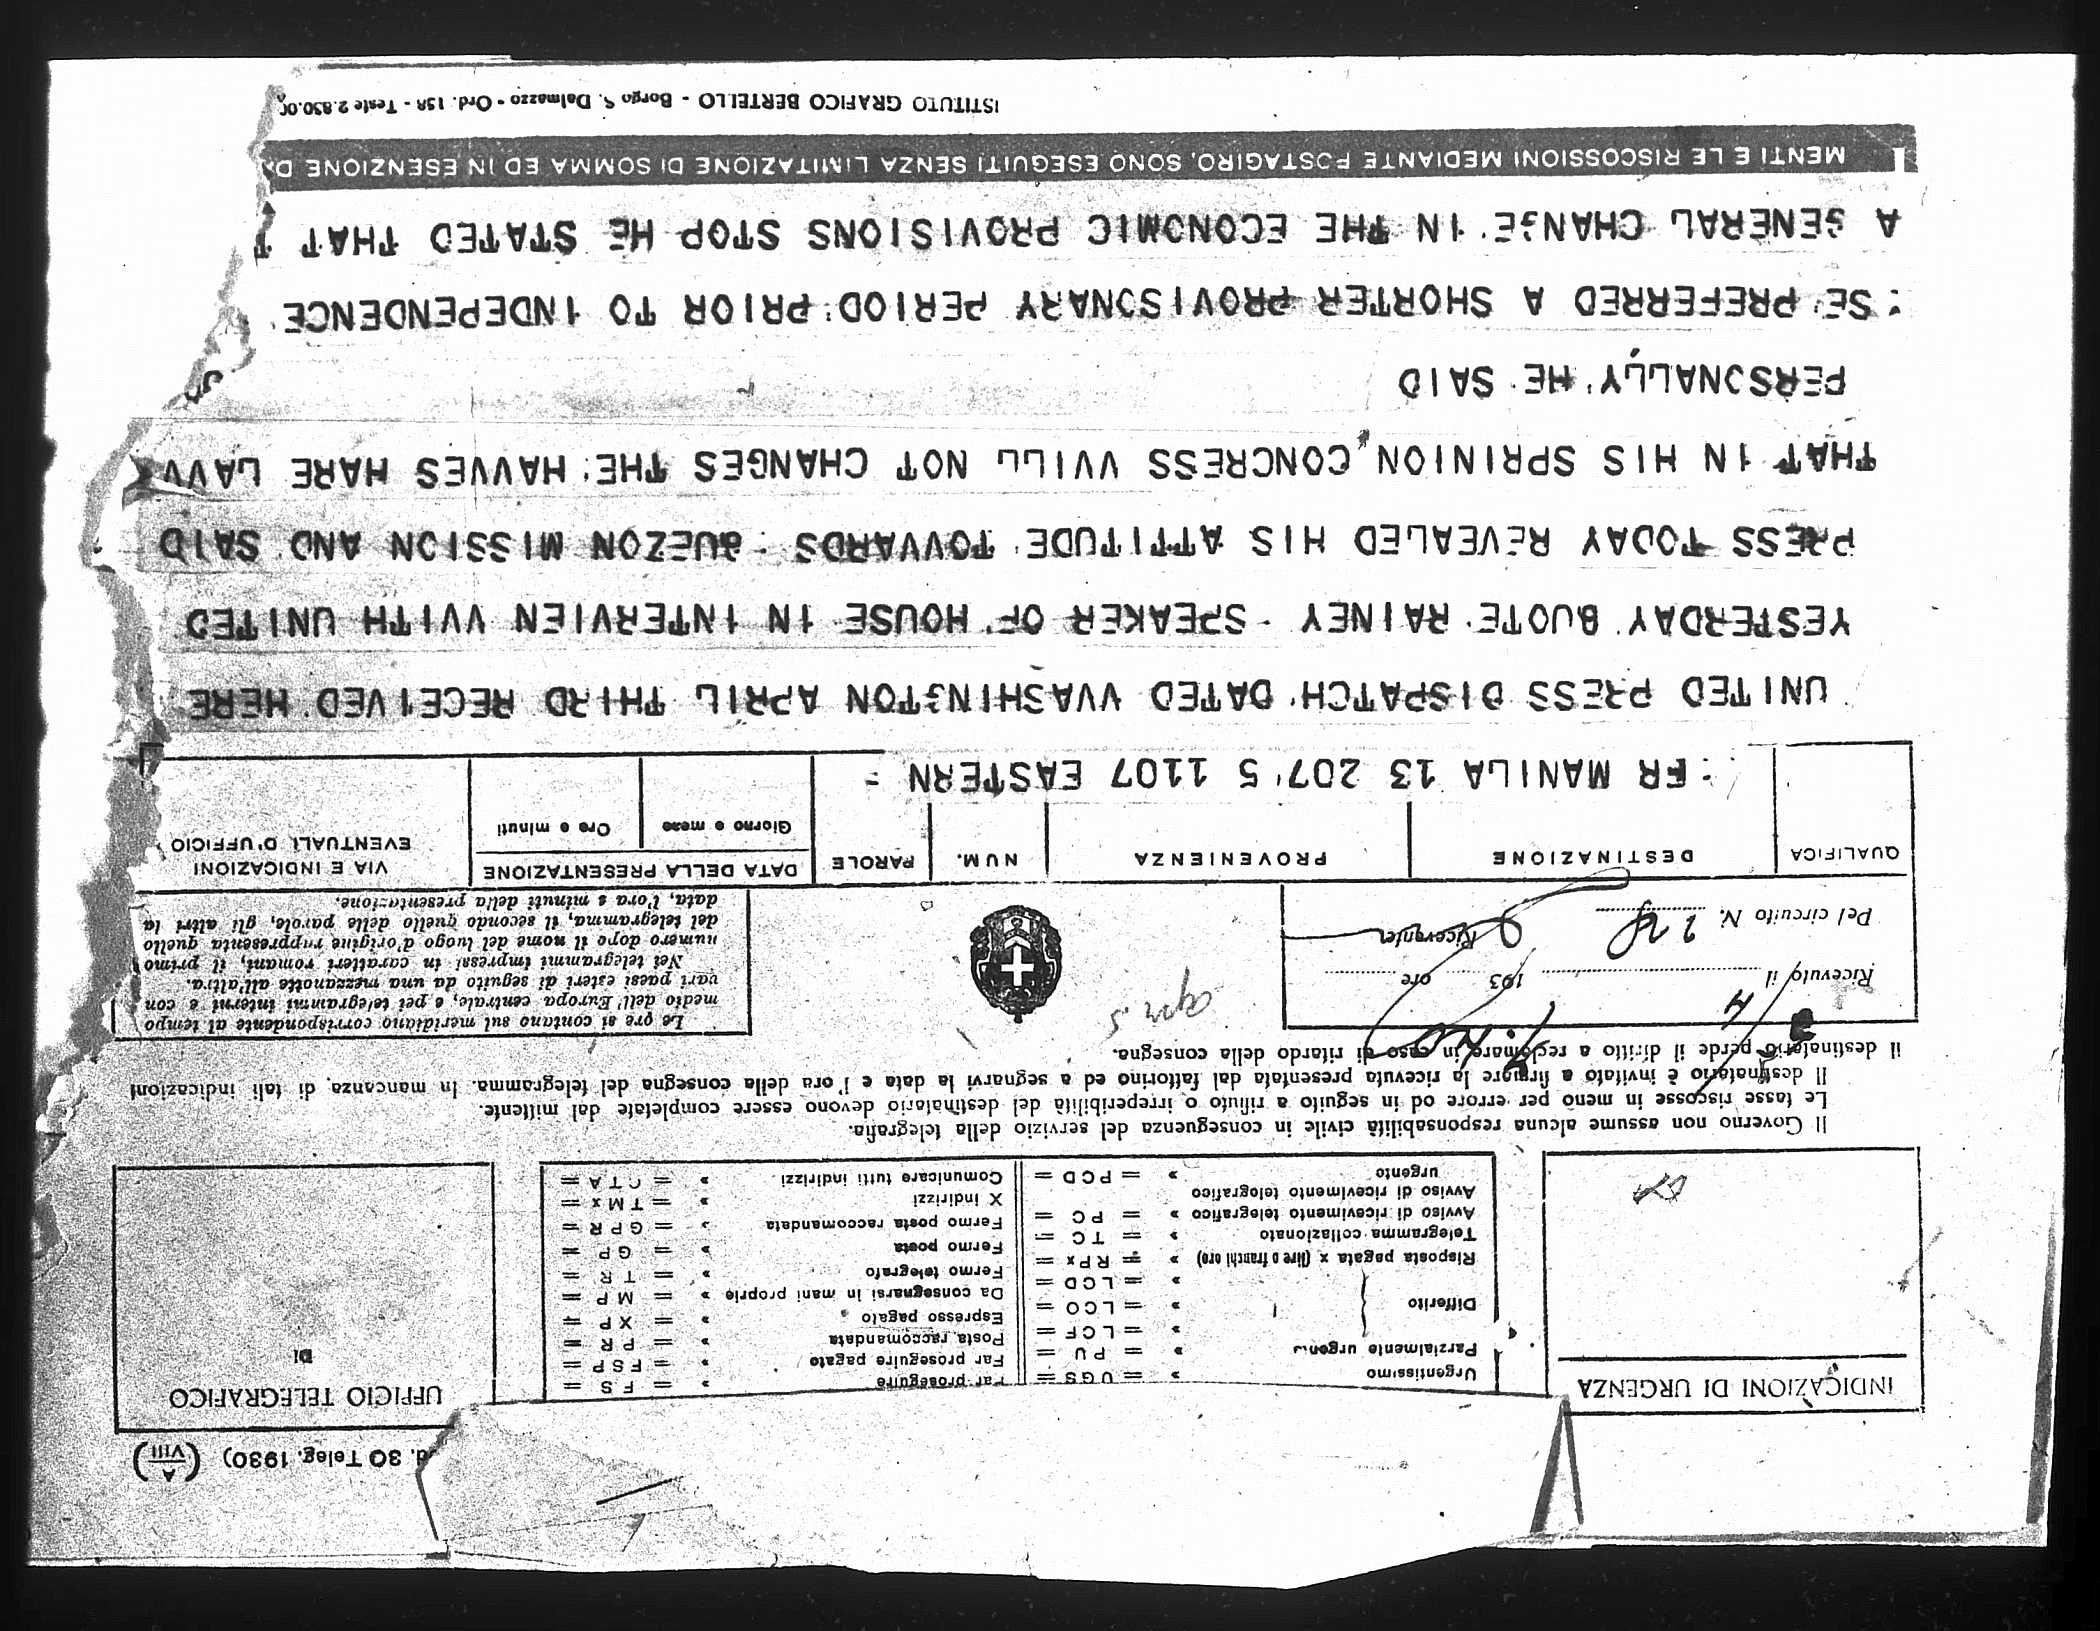 d. 30 Teleg. 1930) (A VIII)
INDICAZIONI DI URGENZA
Urgentissimo » = UGS =
Parzialmente urgen » = PU =
Differito
» = LCF =
» = LCO =
» = LCD =
Risposta pagata x (lire o franchi oro) » = RPx =
Telegramma collazionato » = TC =
Avviso di ricevimento telegrafico » = PC =
Avviso di ricevimento telegrafico
urgente » = PCD =
Far proseguire » = FS =
Far proseguire pagato » = FSP =
Posta raccomandata » = PR =
Espresso pagato » = XP =
Da consegnarsi in mani proprie » = MP =
Fermo telegrafo » = TR =
Fermo posta » = GP =
Fermo posta raccomandata » = GPR =
X indirizzi » = TMx =
Comunicare tutti indirizzi » = CTA =
UFFICIO TELEGRAFICO
DI
Il Governo non assume alcuna responsabilità civile in conseguenza del servizio della telegrafia.
Le tasse riscosse in meno per errore od in seguito a rifiuto o irreperibilità del destinatario devono essere completate dal mittente.
Il destinatario è invitato a firmare la ricevuta presentata dal fattorino ed a segnarvi la data e l'ora della consegna del telegramma. In mancanza di tali indicazioni
il destinatario perde il diritto a reclamare in caso di ritardo della consegna.
Ricevuto il 193 ore
Pel circuito N. Ricevente
Le ore si contano sul meridiano corrispondente al tempo
medio dell'Europa centrale, e pei telegrammi interni e con
vari paesi esteri di seguito da una mezzanotte all'altra.
Nei telegrammi impressi in caratteri romani, il primo
numero dopo il nome del luogo d'origine rappresenta quello
del telegramma, il secondo quello delle parole, gli altri la
data, l'ora e minuti della presentazione.
QUALIFICA
DESTINAZIONE
PROVENIENZA
NUM.
PAROLE
DATA DELLA PRESENTAZIONE
Giorno e mese
Ore e minuti
VIA E INDICAZIONI
EVENTUALI D'UFFICIO
: FR MANILA 13 207 5 1107 EASTERN =
UNITED PRESS DISPATCH DATED VVASHINGTON APRIL THIRD RECEIVED HERE
YESTERDAY QUOTE RAINEY SPEAKER OF HOUSE IN INTERVIEN VVITH UNITED
PRESS TODAY REVEALED HIS ATTITUDE TOVVARDS QUEZON MISSION AND SAID
THAT IN HIS SPRINION CONCRESS VVILL NOT CHANGES THE HAVVES HARE LAVV
PERSONALLY HE SAID
: SE PREFERRED A SHORTER PROVISONARY PERIOD PRIOR TO INDEPENDENCE
A GENERAL CHANGE IN THE ECONOMIC PROVISIONS STOP HE STATED THAT T
MENTI E LE RISCOSSIONI MEDIANTE POSTAGIRO, SONO ESEGUITI SENZA LIMITAZIONE DI SOMMA ED IN ESENZIONE DA
ISTITUTO GRAFICO BERTELLO - Borgo S. Dalmazzo - Ord. 158 - Teste 2.850.00